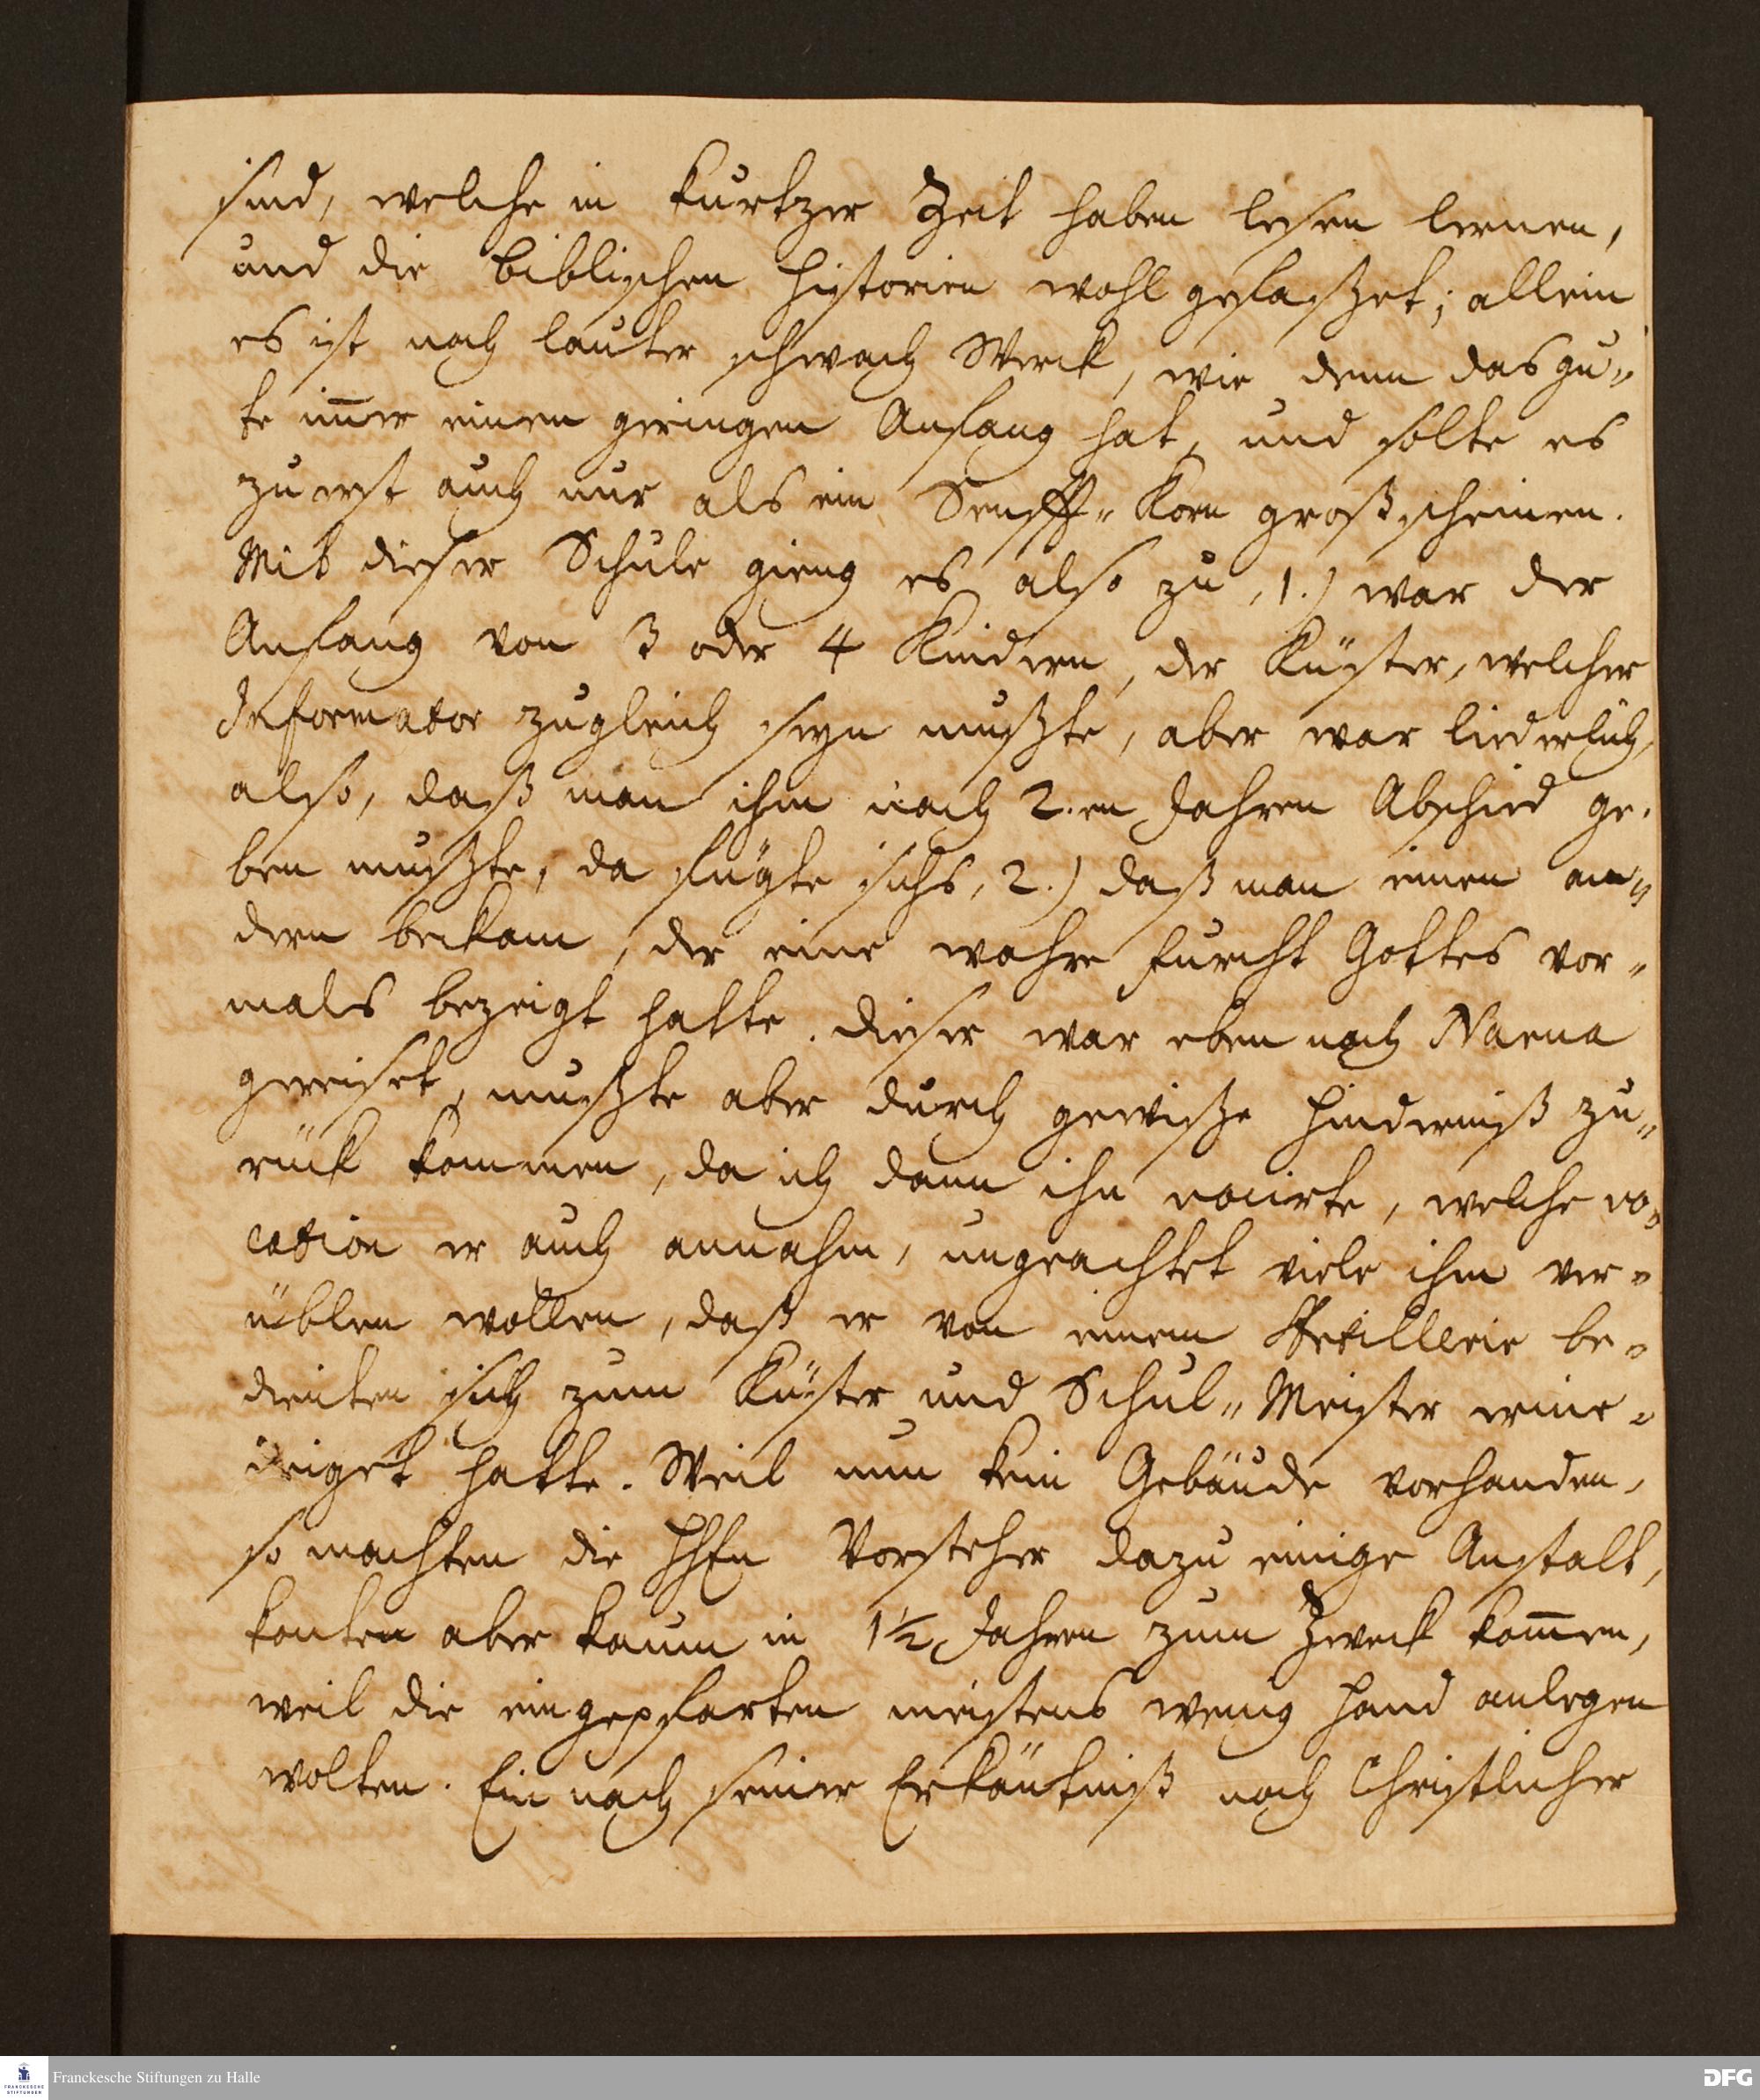 sind, welche in kurtzer Zeit haben lesen lernen,
und die biblischen Historien wohl gefaszet; allein
es ist noch lauter schwach Werck, wie denn das gu-
te im̅er einen geringen Anfang hat, und solte es
zu erst auch nur als ein Senff-Korn groß scheinen.
Mit dieser Schule gieng es also zu, 1.) war der
Anfang von 3 oder 4 Kindern, der Küster, welcher
Informator zugleich seyn muszte, aber war liederlich,
also, daß man ihm nach 2.en Jahren Abschied ge-
ben muszte, da fügte sichs, 2.) daß man einen an-
dern bekam, der eine wahre Furcht Gottes vor-
mals bezeigt hatte. dieser war eben nach Narva
gereiset, muszte aber durch gewisze Hinderniß zu-
rück kommen, da ich dann ihn vocirte, welche vo-
cation er auch annahm, ungeachtet viele ihm ver-
üblen wollen, daß er von einem Artillerie be-
dienten sich zum Küster und Schul-Meister ernie-
driget hatte. Weil nun kein Gebäude vorhanden,
so machten die HhEn Vorsteher dazu einige Anstalt,
konten aber kaum in 1½ Jahren zum Zweck kom̅en,
weil die eingepfarten meistens wenig Hand anlegen
wolten. Ein nach seiner Erkäntniß noch Christlicher
Franckesche Stiftungen zu Halle
DFG